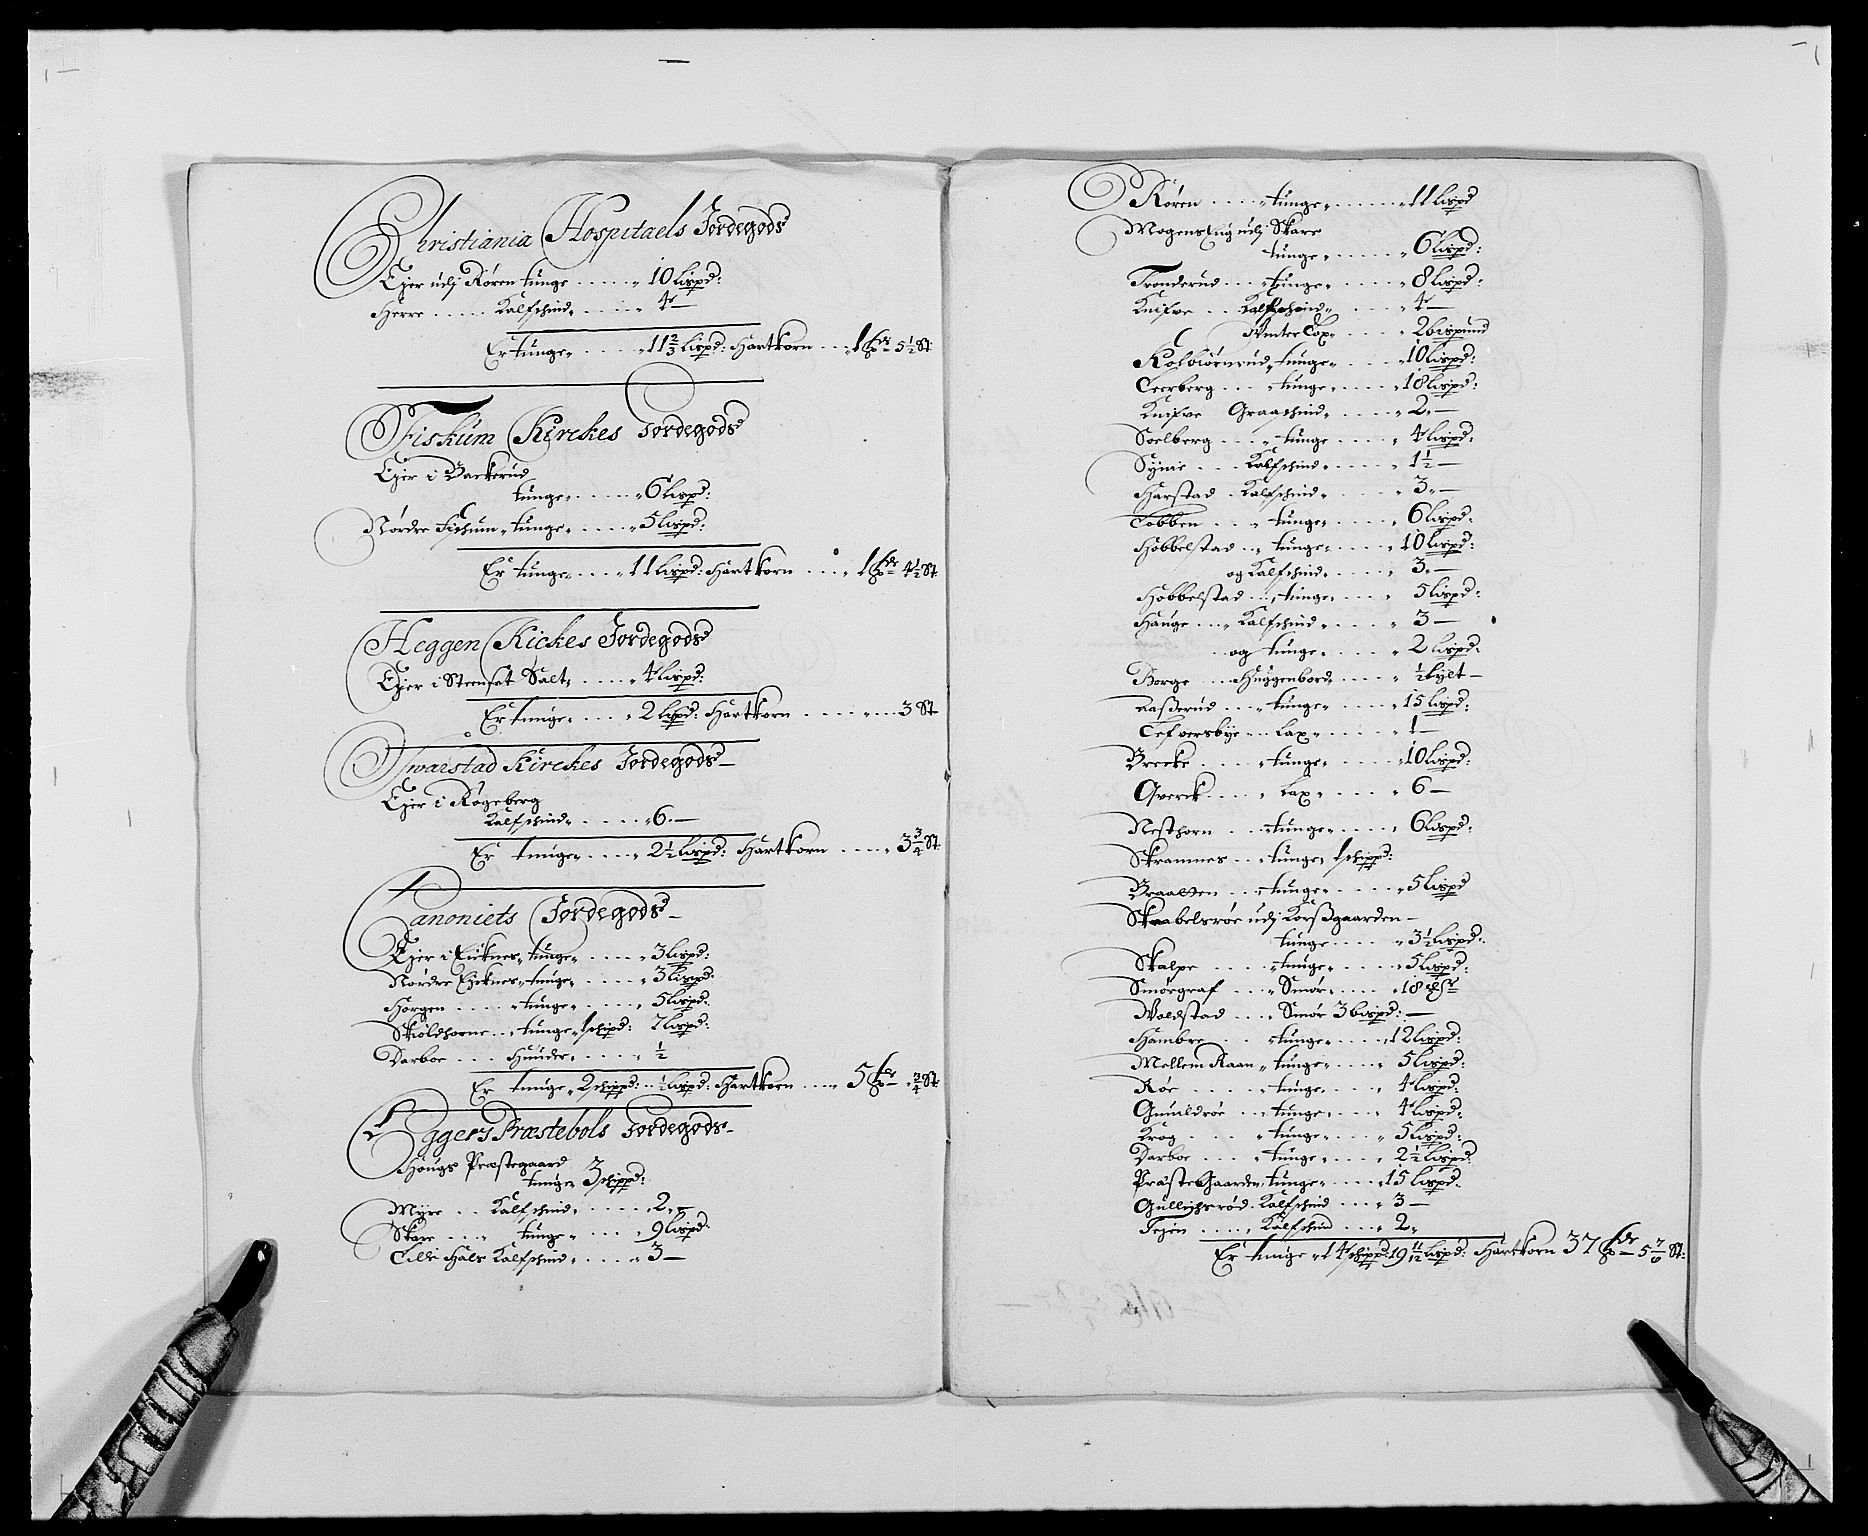 Christiania Hospitaels Jordegods
Ejer udj Røren tunge ..... 10 lispd:
Herre ..... Kalfschind ..... 4 —
Er tunge ..... 11 2/3 lispd: Hartkorn ... 1 5 1/2 St
Fiskum Kirckes Jordegods
Ejer i Backerud
tunge ..... 6 lispd:
Nørdre Fischum tunge ..... 5 lispd:
Er tunge ..... 11 lispd: Hartkorn .... 1 4 1/2 St
Heggen Kickes Jordegods
Ejer i Steensæt Salt ..... 4 lispd:
Er tunge ..... 2 lispd: Hartkorn ..... 3 St
Swarstad Kirckes Jordegods —
Ejer i Røgeberg
Kalfschind ..... 6. —
Er tunge ..... 2 1/2 lispd: Hartkorn ..... 3 3/4 St
Canoniets Jordegods —
Ejer i Eicknes tunge ..... 3 lispd:
Nørdre Eicknes tunge ..... 3 lispd:
Horgen ..... tunge ..... 5 lispd:
Skioldhorne .. tunge 1 schipd: 7 lispd:
Darboe ... Huuder ..... 1/2
Er tunge 2 schippd: 1/2 lispd: Hartkorn .... 5 3/4 St
Eggers Præstebols Jordegods —
Hougs Præstegaard
tunge 3 schippd:
Myre .. Kalfschind ..... 2. —
Skare .... tunge ..... 9 lispd:
Lille Hals Kalfschind ..... 3 —
Røren ..... tunge ..... 11 lispd
Mogens Eng udj Skare
tunge ..... 6 lispd:
Tronderud .... tunge ..... 8 lispd:
Knifve ... Kalfschind ..... 4 —
Winter Lox ..... 2 bispund
Kolbiørnrud tunge ..... 10 lispd:
Leerberg .... tunge ..... 18 lispd:
Knifve Graaschind ..... 2. —
Soelberg ..... tunge ..... 4 lispd:
Synie ... Kalfschind ..... 1 1/2 —
Harstad . Kalfschind ..... 3. —
Lobben .... tunge ..... 6 lispd:
Hobbelstad .. tunge ..... 10 lispd:
og Kalfschind ..... 3. —
Hobbelstad .. tunge ..... 5 lispd:
Hauge ... Kalfschind ..... 3 —
og tunge ..... 2 lispd:
Borge .... Huggenbord ..... 1/2 tylt —
Laßerud .... tunge ..... 15 lispd:
Lefversbye .. Lax ..... 1 —
Brecke ..... tunge ..... 10 lispd:
Qverck ..... Lax ..... 6 —
Nesthorn .... tunge ..... 6 lispd:
Skramnes ... tunge 1 schippd:
Braatten .... tunge ..... 5 lispd
Skaabelsrøe udj Korßgaarden —
tunge ..... 3 1/2 lispd:
Skalpe ..... tunge ..... 5 lispd:
Smørgraf .... Smør ..... 18
Woldstad .... Smør 3 bispd: —
Hambre .... tunge ..... 12 lispd:
Mellem Raan tunge ..... 5 lispd:
Røe ..... tunge ..... 4 lispd:
Gunildrøe .. tunge ..... 4 lispd:
Krog ..... tunge ..... 5 lispd:
Darboe .... tunge ..... 2 1/2 lispd:
Præste Gaarden tunge ..... 15 lispd.
Gullichsrød . Kalfschind .... 3 —
Tejen ..... Kalfschind .... 2.
Er tunge 14 schippd: 19 11/12 lispd: Hartkorn 37 — 5 St: